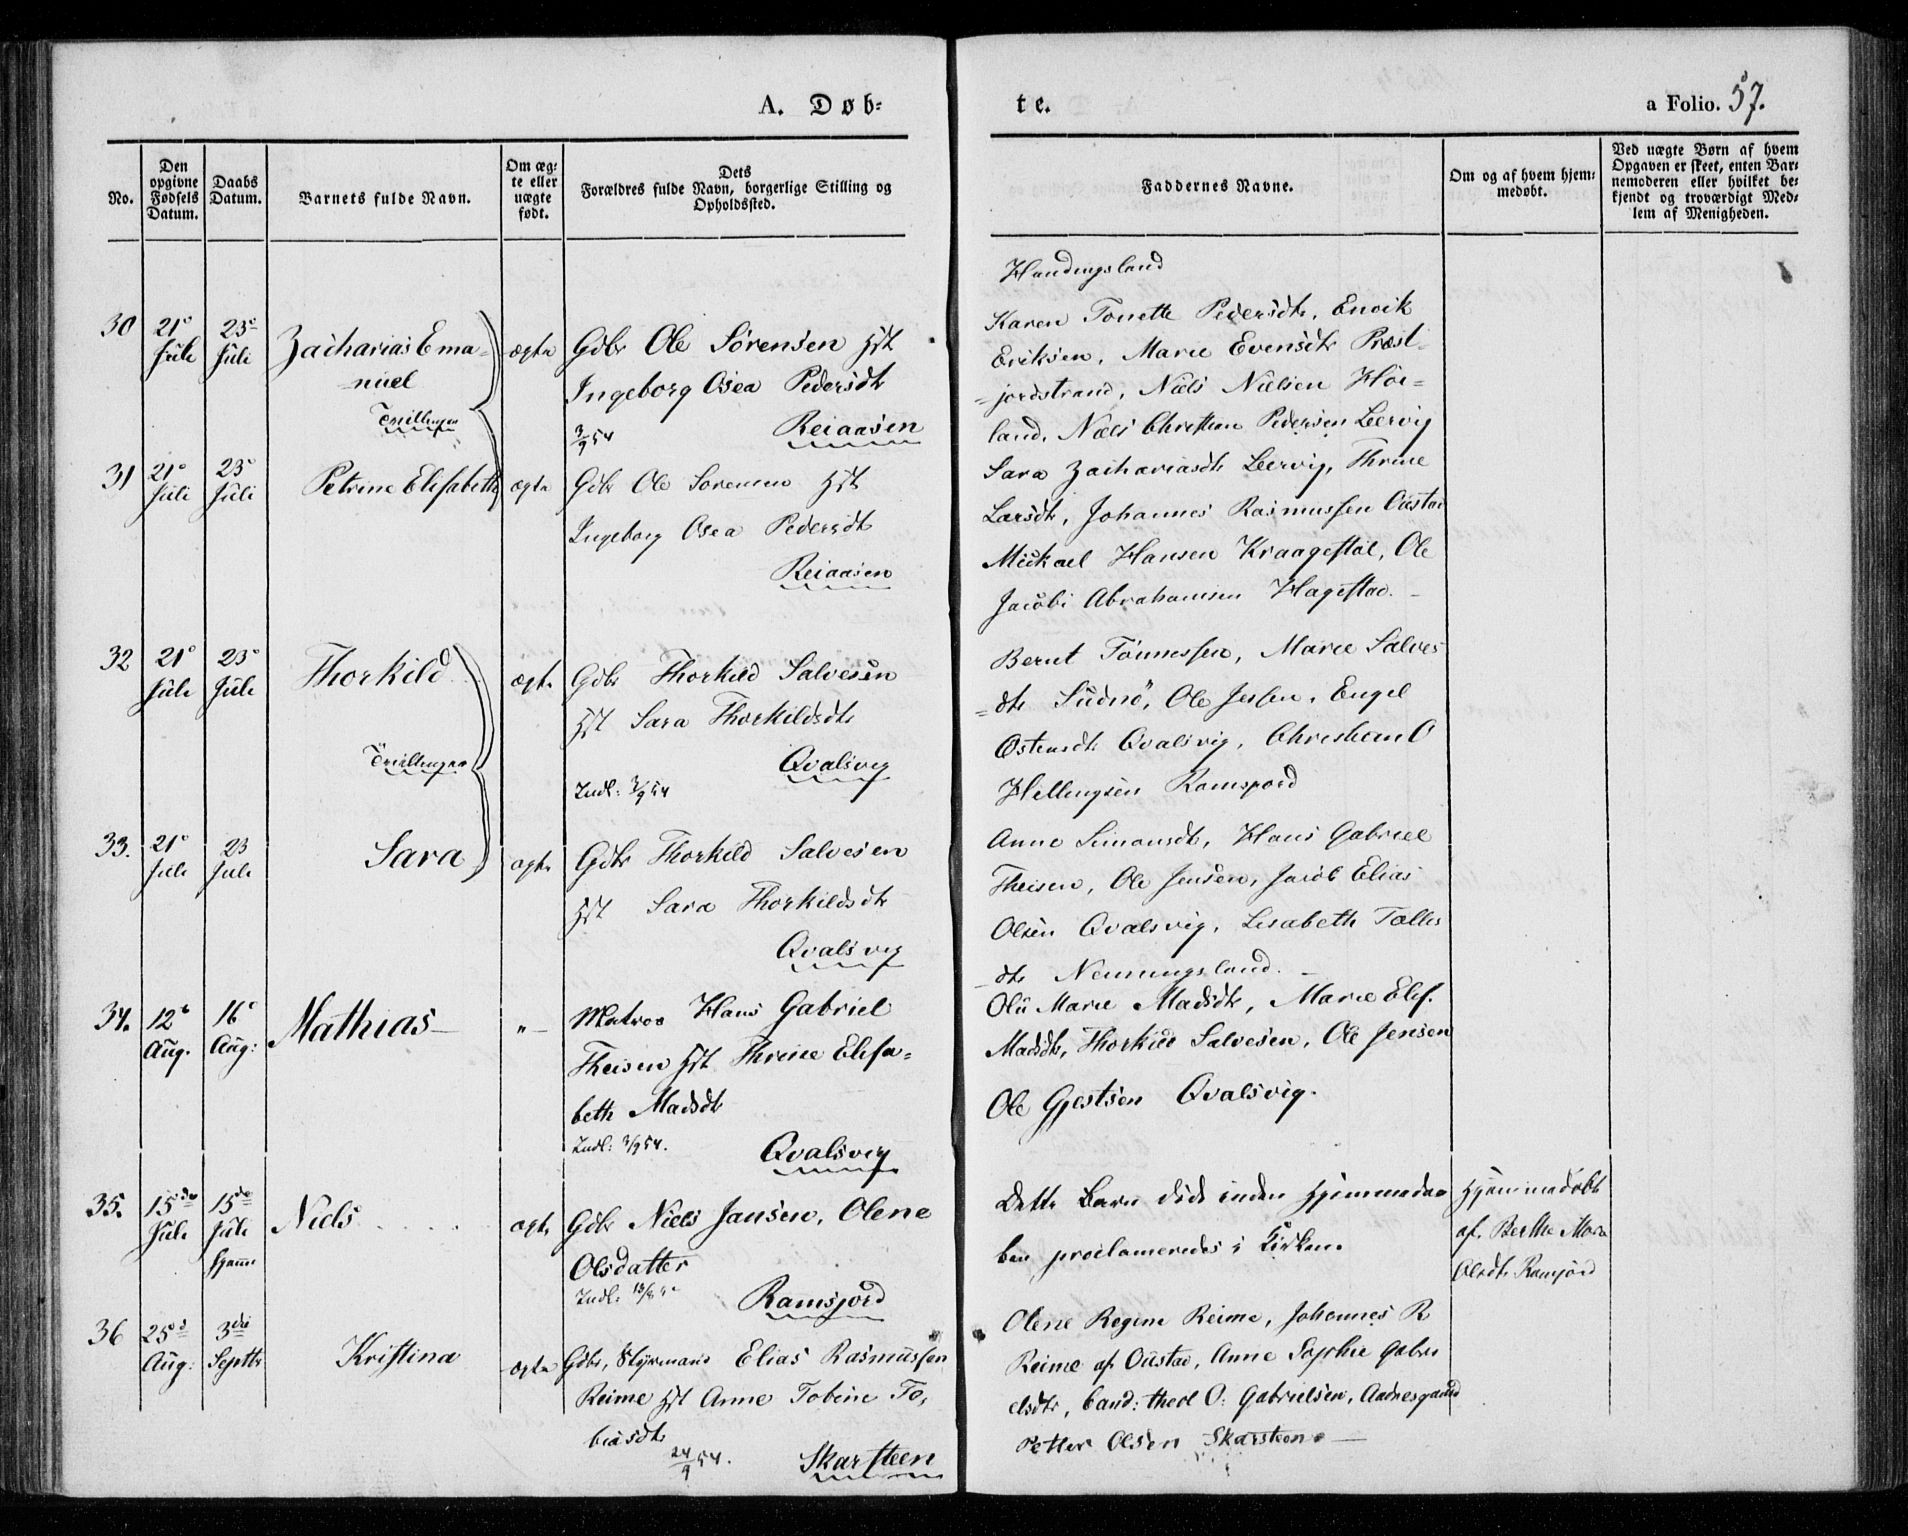 A. Døb-
te.
a Folio. 57.
No.
Den opgivne Fødsels Datum.
Daabs Datum.
Barnets fulde Navn.
Om ægte eller uægte født.
Dets Forældres fulde Navn, borgerlige Stilling og Opholdssted.
Faddernes Navne.
Om og af hvem hjemmedøbt.
Ved uægte Børn af hvem Opgaven er skeet, enten Barnemoderen eller hvilket bekjendt og troværdigt Medlem af Menigheden.
30
21de Juli
23de Juli
Zacharias Ema-
nuel
Tvillinger
ægte
Gdbr Ole Sørensen Hst
Ingeborg Osea Pedersdtr
3/9 54
Reiaasen
Handingsland
Karen Tonette Pedersdtr, Enok
Eriksen, Marie Evensdtr Præst-
-jordstrand, Niels Nielsen Hør-
land, Niels Christian Pedersen Leervig
31
21de Juli
23de Juli
Petrine Elisabeth
ægte
Gdbr Ole Sørensen Hst
Ingeborg Osea Pedersdtr
Reiaasen
Sara Zachariasdtr Leervig, Thrine
Larsdtr, Johannes Rasmussen Oustad
Mickael Hansen Kraagestøl, Ole
Jacobi Abrahamsen Hagestad.
32
21de Juli
23de Juli
Thorkild
Tvillinger
ægte
Gdbr Thorkild Salvesen
Hst Sara Thorkildsdtr
Qvalsvig
Indl: 3/9 54
Bernt Tönnessen, Marie Salves
-dtr Sudnö, Ole Jensen, Engel
Ostensdtr Qvalsvig, Christian O
Hellingsen Ramsjord
33.
21de Juli
23 Juli
Sara
ægte
Gdbr Thorkild Salvesen
Hst Sara Thorkildsdtr
Qvalsvig
Anne Simonsdtr, Hans Gabriel
Theisen, Ole Jensen, Jacob Elias
Olsen Qvalsvig, Lisabeth Talles
-dtr Nenningsland.
34.
12te Aug.
16de Aug:
Mathias
"
Matros Hans Gabriel
Theisen Hst Thrine Elisa-
beth Madsdtr
Indl: 3/9 54.
Qvalsvig
Marie Madsdtr, Marie Elis.
Madsdtr, Thorkild Salvesen, Ole Jensen
Ole Gjestsen Qvalsvig.
35.
15de Juli
15de Juli
hjemme
Niels
ægte
Gdbr Niels Jansen, Olene
Olsdatter
Indl:
Ramsjord
Dette Barn døde inden Hjemmedaa
ben proclameredes i Kirken.
Hjemmedøbt
af Berthe Mar
Olsdtr Ramsjord
36
25de Aug:
3die Septbr
Kristina
ægte
Gdbr, Styrmand Elias Rasmussen
Reime Hst Anne Tobine To,
biasdtr
24/9 54.
Skarsteen
Olene Regine Reime, Johannes R
Reime af Oustad, Anne Sophie Gabri
elsdtr, Cand: theol O: Gabrielsen, Aadnesgaard
Petter Olsen Skarsteen